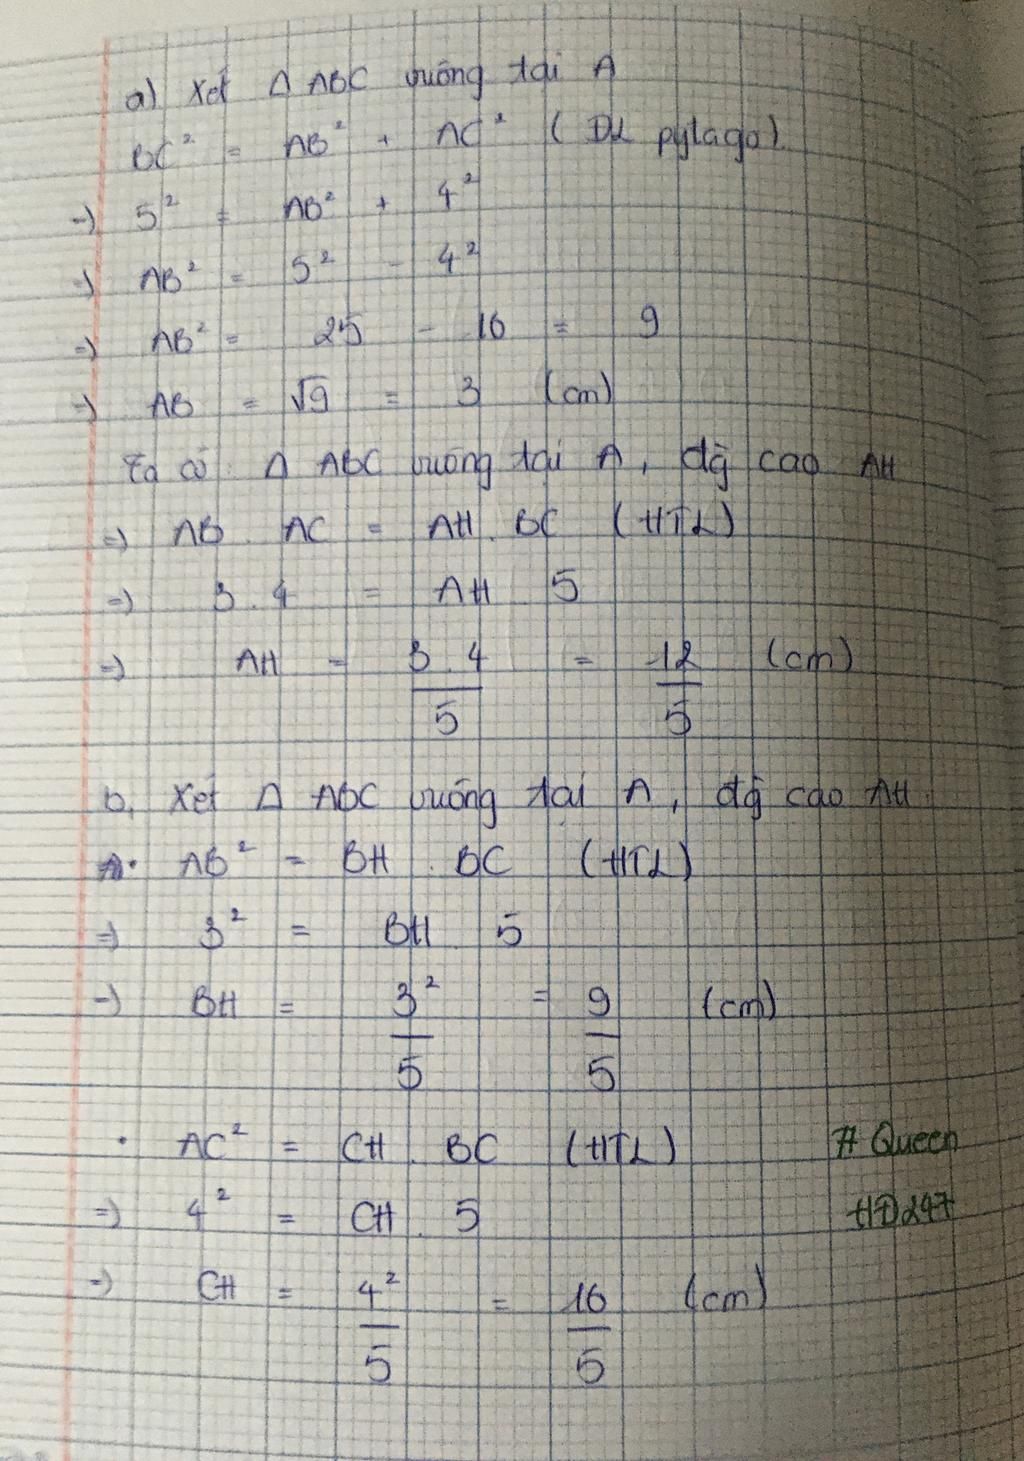 a) Xét Δ ABC vuông tại A
BC² = AB² + AC² (ĐL pytago).
=> 5² = AB² + 4²
=> AB² = 5² - 4²
=> AB² = 25 - 16 = 9
=> AB = √9 = 3 (cm)
Ta có Δ ABC vuông tại A, đg cao AH
=> AB. AC = AH. BC (HTL)
=> 3.4 = AH 5
=> AH = 3.4/5 = 12/5 (cm)
b, Xét Δ ABC vuông tại A, đg cao AH.
• AB² = BH . BC (HTL)
=> 3² = BH. 5
=> BH = 3²/5 = 9/5 (cm)
• AC² = CH. BC (HTL) # Queen
=> 4² = CH. 5 HD247
=> CH = 4²/5 = 16/5 (cm)